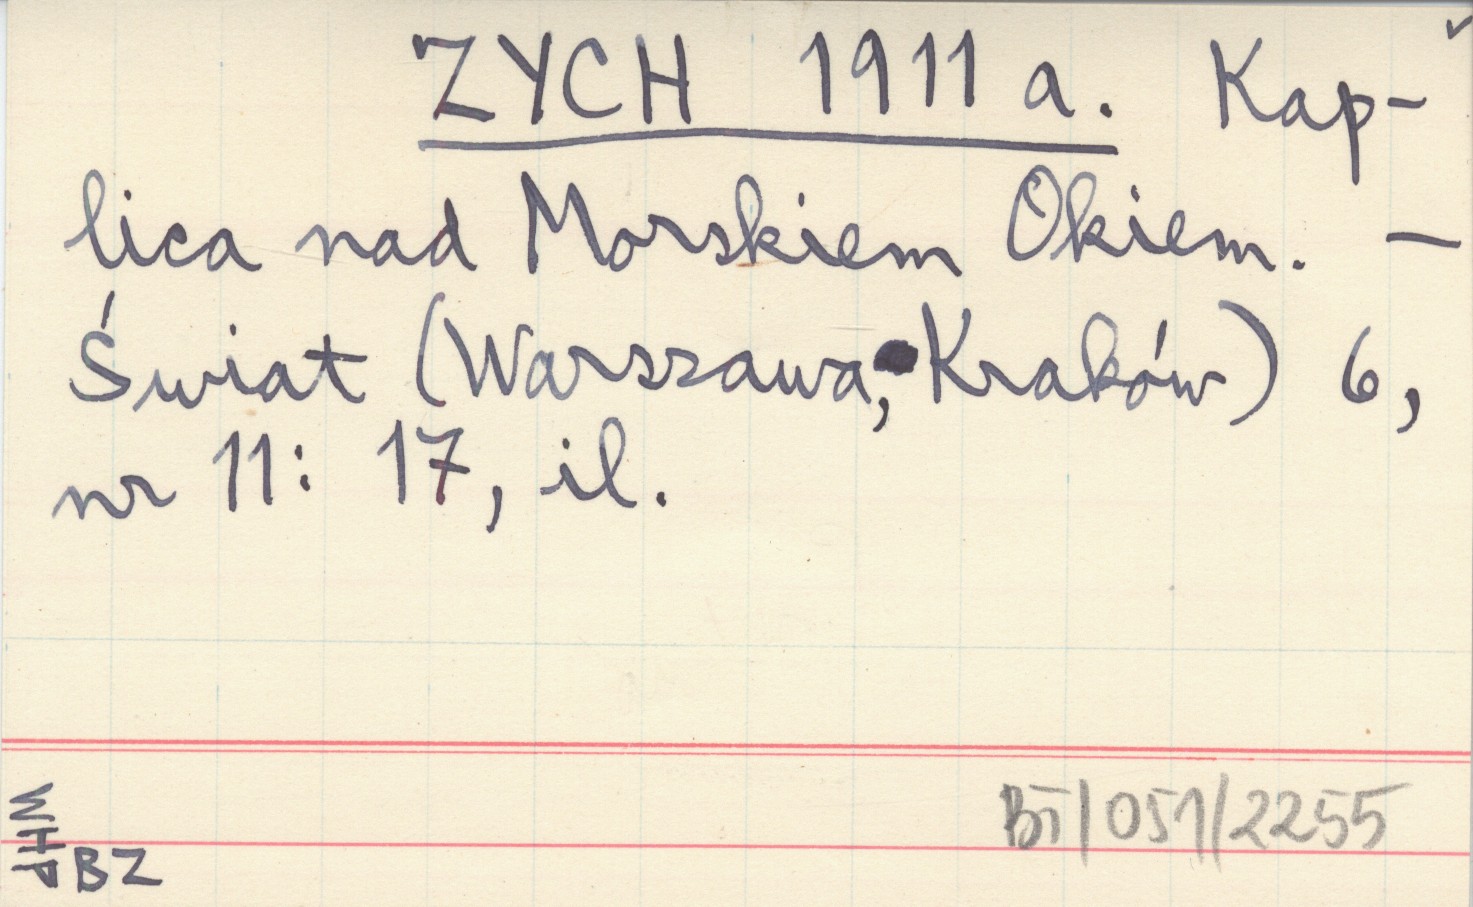 ZYCH 1911 a. Kap-
lica nad Morskiem Okiem. —
Świat (Warszawa, Kraków) 6,
nr 11: 17, il.
BT/051/2255
WHP
BZ